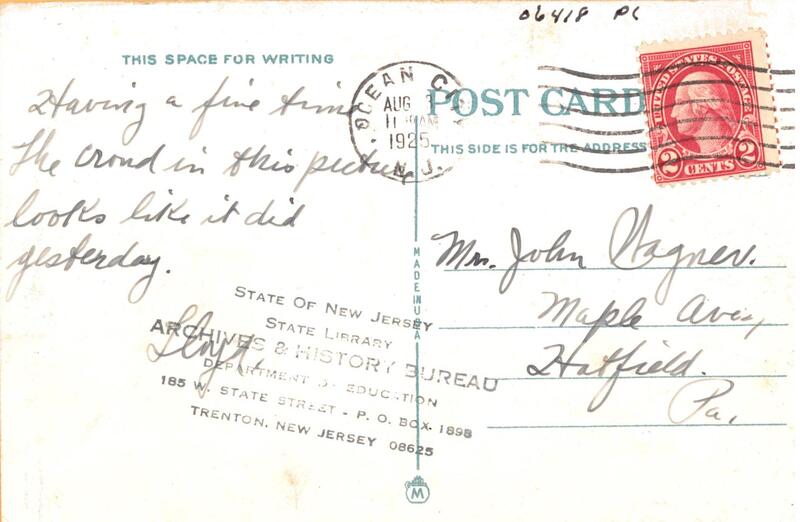 06418 PC
THIS SPACE FOR WRITING
Having a fine time
The crowd in this picture
looks like it did
yesterday.
Lloyd.
OCEAN CITY
AUG 3
11 AM
1925
N.J.
POST CARD
THIS SIDE IS FOR THE ADDRESS
UNITED STATES POSTAGE
2 CENTS 2
Mrs. John Wagner.
Maple Ave,
Hatfield.
Pa,
MADE IN U.S.A
STATE OF NEW JERSEY
STATE LIBRARY
ARCHIVES & HISTORY BUREAU
DEPARTMENT OF EDUCATION
185 W. STATE STREET - P. O. BOX 1898
TRENTON, NEW JERSEY 08625
M